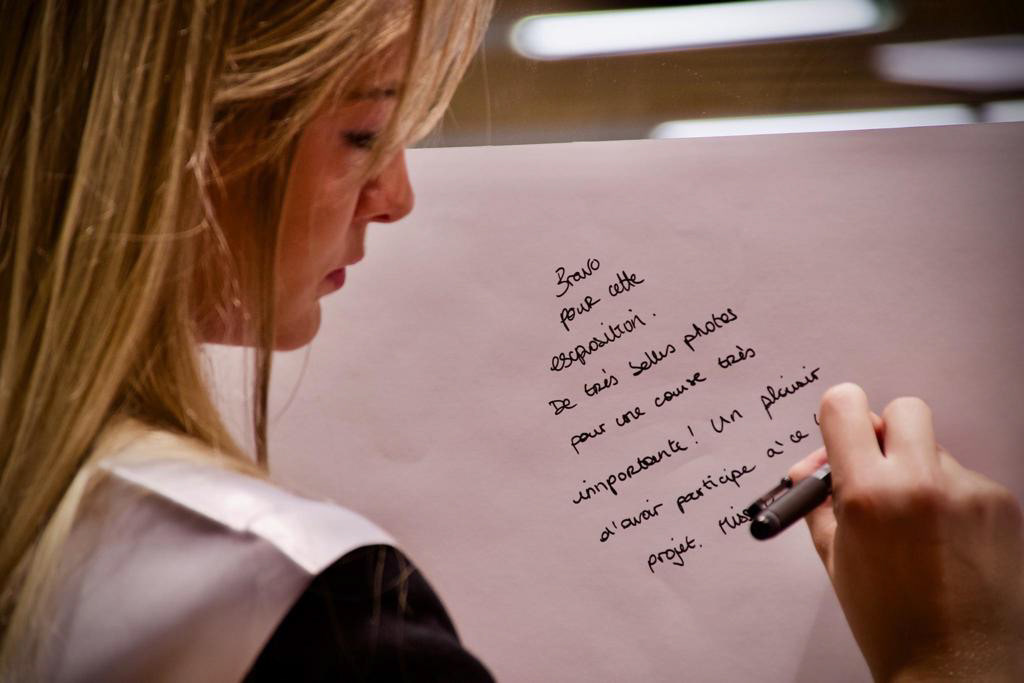 Bravo
pour cette
exposition.
De très belles photos
pour une cause très
importante! Un plaisir
d'avoir participe à ce
projet. Miss